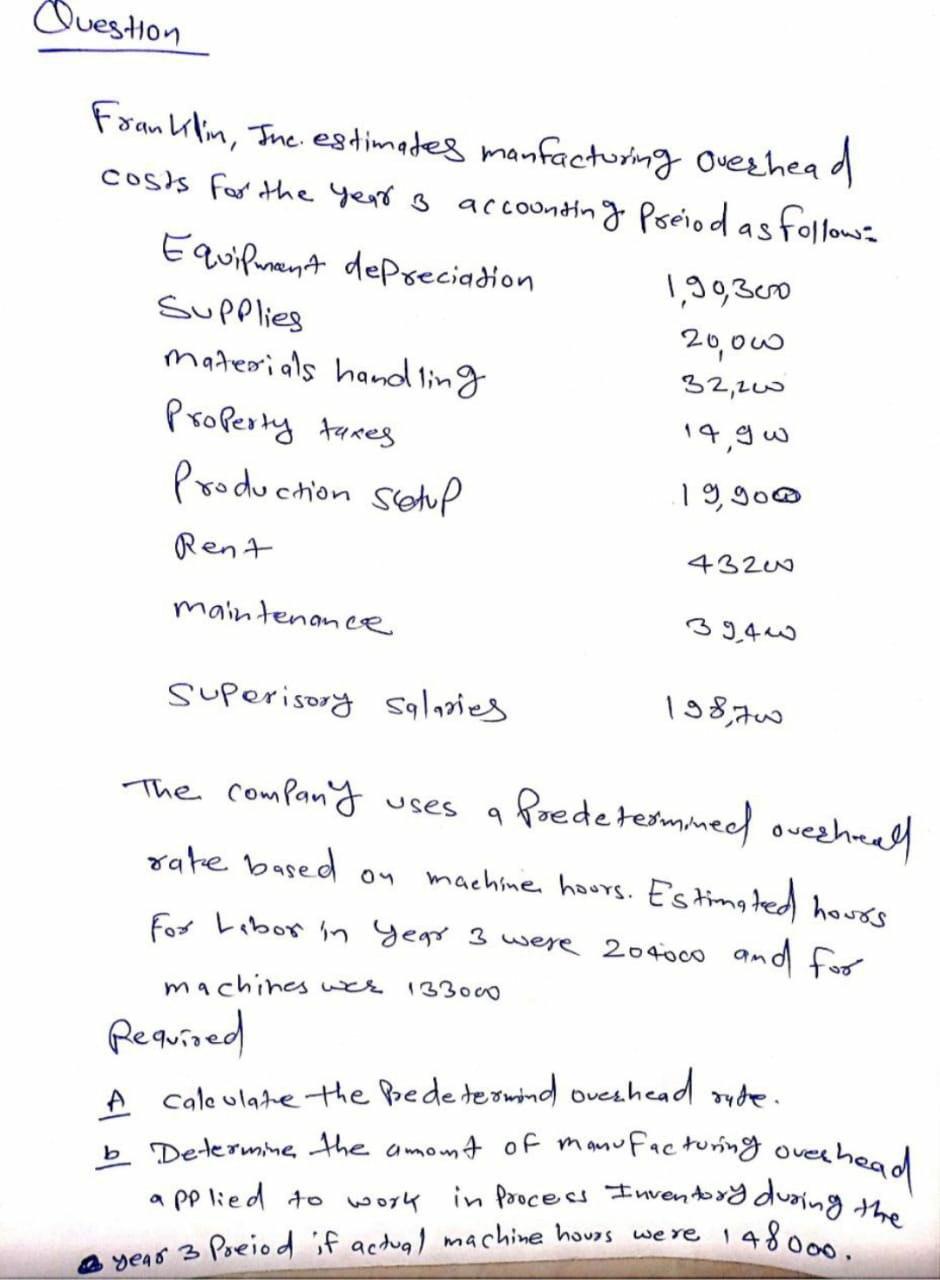 Question
Franklin, Inc. estimates manfacturing overhead
costs for the year 3 accounting Preiod as follow:
Equipment depreciation 1,90,300
Supplies 20,000
materials handling 32,200
Property taxes 14,900
Production setup 19,900
Rent 43200
maintenance 39,400
Superisory salaries 198,700
The company uses a Predetermined overhead
rate based on machine hours. Estimated hours
For Labor in year 3 were 204000 and for
machines were 133000
Required
A calculate the Predetermind overhead rate.
b Determine the amomt of manufacturing overhead
applied to work in process Inventory during the
year 3 Preiod if actual machine hours were 148000.